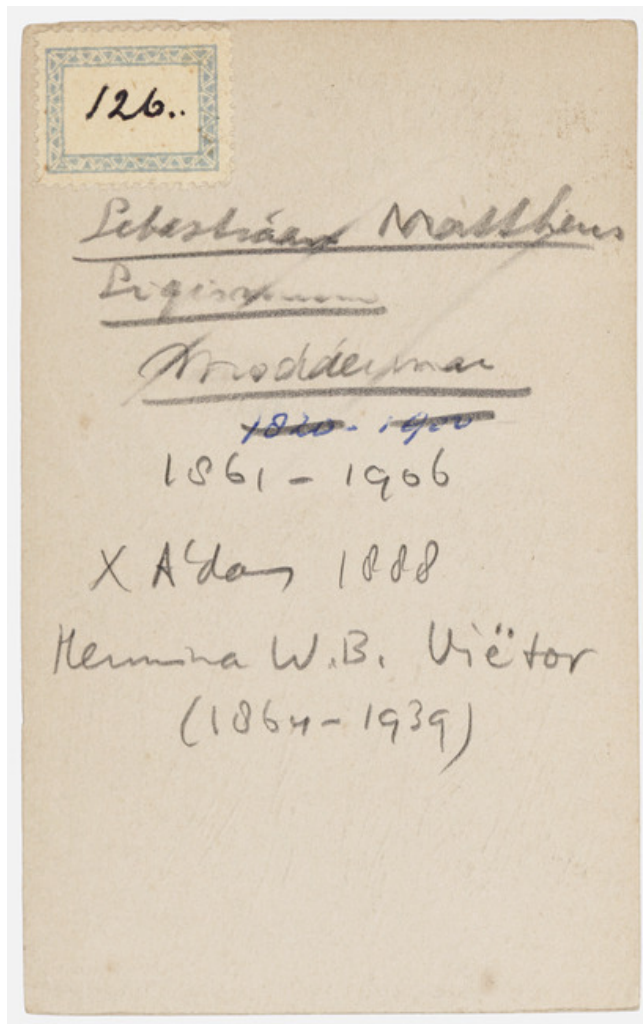 126..
Sebastiáan Mattheus
Sigismund
1820-1900
1861-1906
X A'dam 1888
Hermina W.B. Viëtor
(1864-1939)